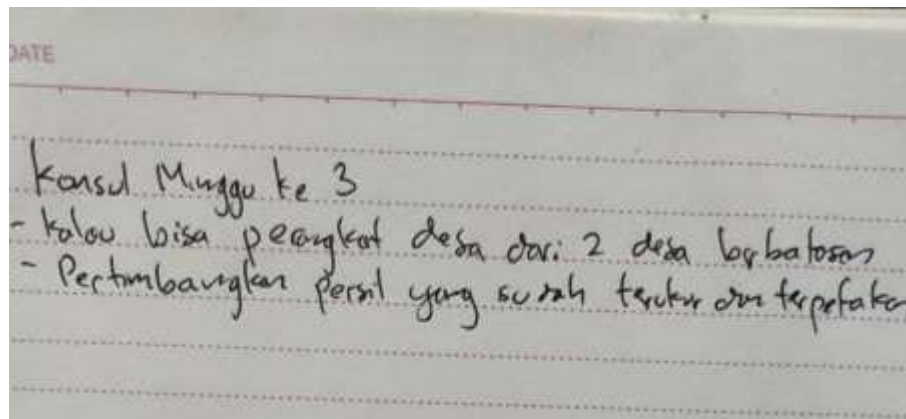 DATE
Konsul Minggu ke 3
- Kalau bisa perangkat desa dari 2 desa berbatasan
- Pertimbangkan persil yang sudah terukur dan terpetakan